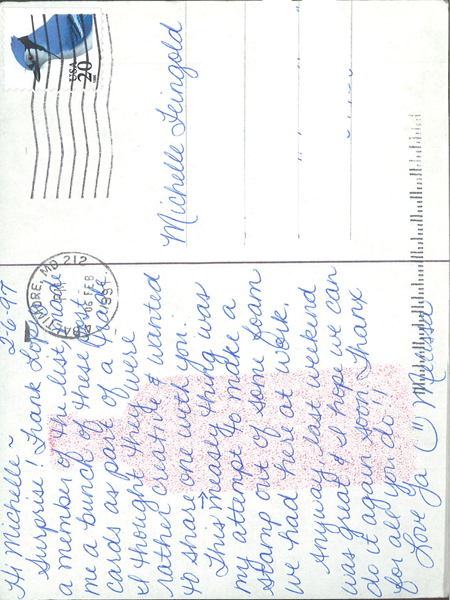 2-6-97
Hi Michelle ~
Surprise! Frank Lopi
a member of the list, made
me a bunch of these post
cards as part of a trade.
I thought they were
rather creative & wanted
to share one with you.
This measly thing was
my attempt to make a
stamp out of some foam
we had here at work.
Anyway last weekend
was great & I hope we can
do it again soon. Thanx
for all you do!!
Love ya
USA
20
BALTIMORE, MD 212
PM
06 FEB
1997
Michelle Feingold